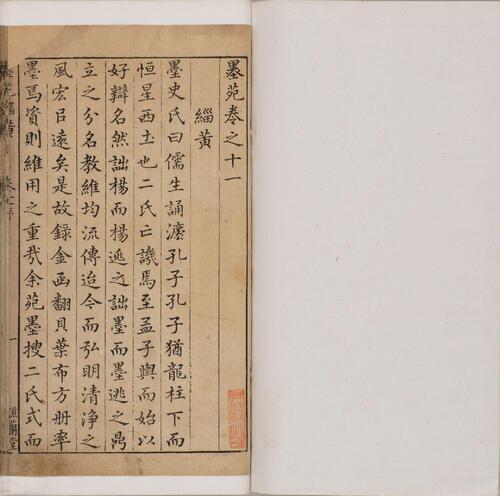 墨苑卷之十一
緇黄
墨史氏曰儒生誦灋孔子孔子猶龍柱下而
恒星西土也二氏亡譏焉至孟子輿而始以
好辯名然詘楊而楊逃之詘墨而墨逃之鼎
立之分名教維均流傳迨今而弘明清淨之
風宏巨遠矣是故録金函翻貝葉布方册率
墨焉資則維用之重哉余苑墨搜二氏式而
滋蘭堂